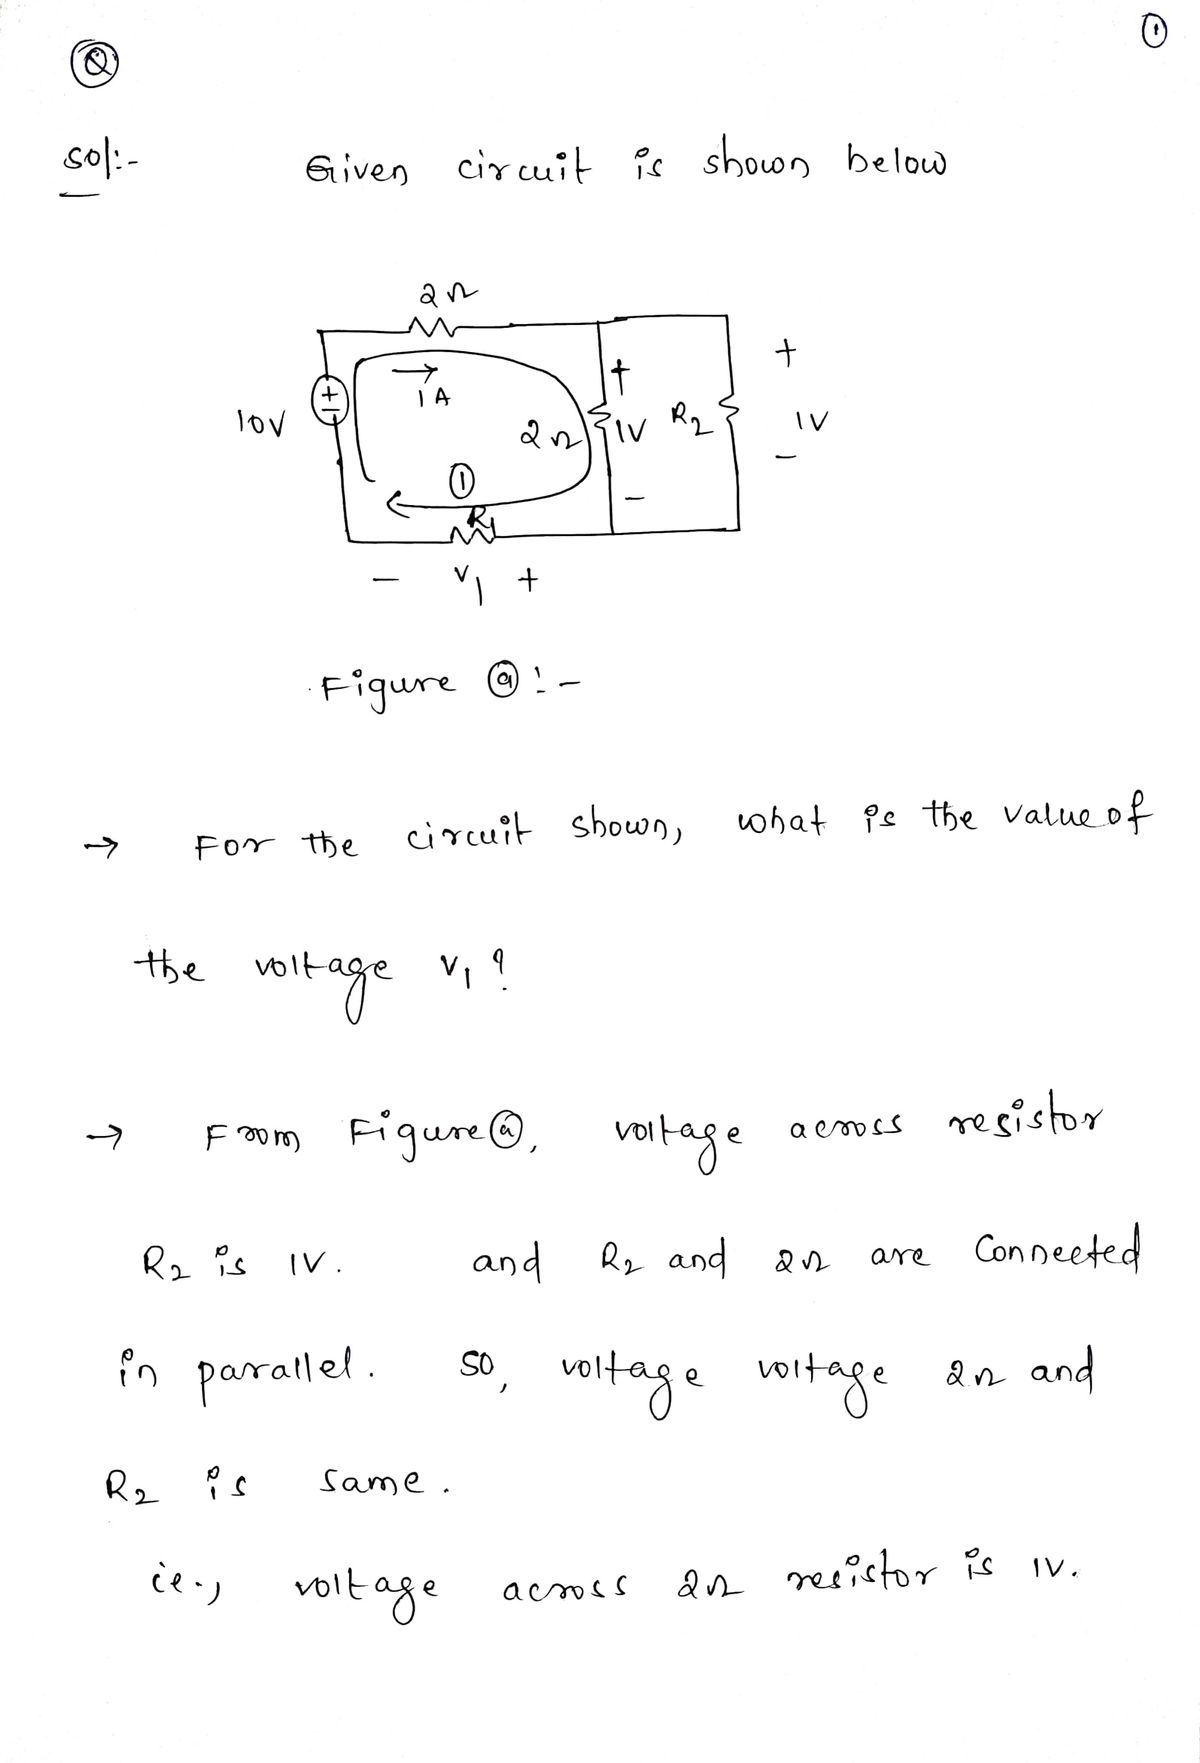 Q
1
Sol:-
Given circuit is shown below
2Ω
+
+
1A
10V
2Ω
1V
R2
1V
-
1
-
R1
- V1 +
Figure a :-
→ For the circuit shown, what is the value of
the voltage V1 ?
→ From Figure a, voltage across resistor
R2 is 1V. and R2 and 2Ω are Connected
in parallel. so, voltage voltage 2Ω and
R2 is same.
ie., voltage across 2Ω resistor is 1V.